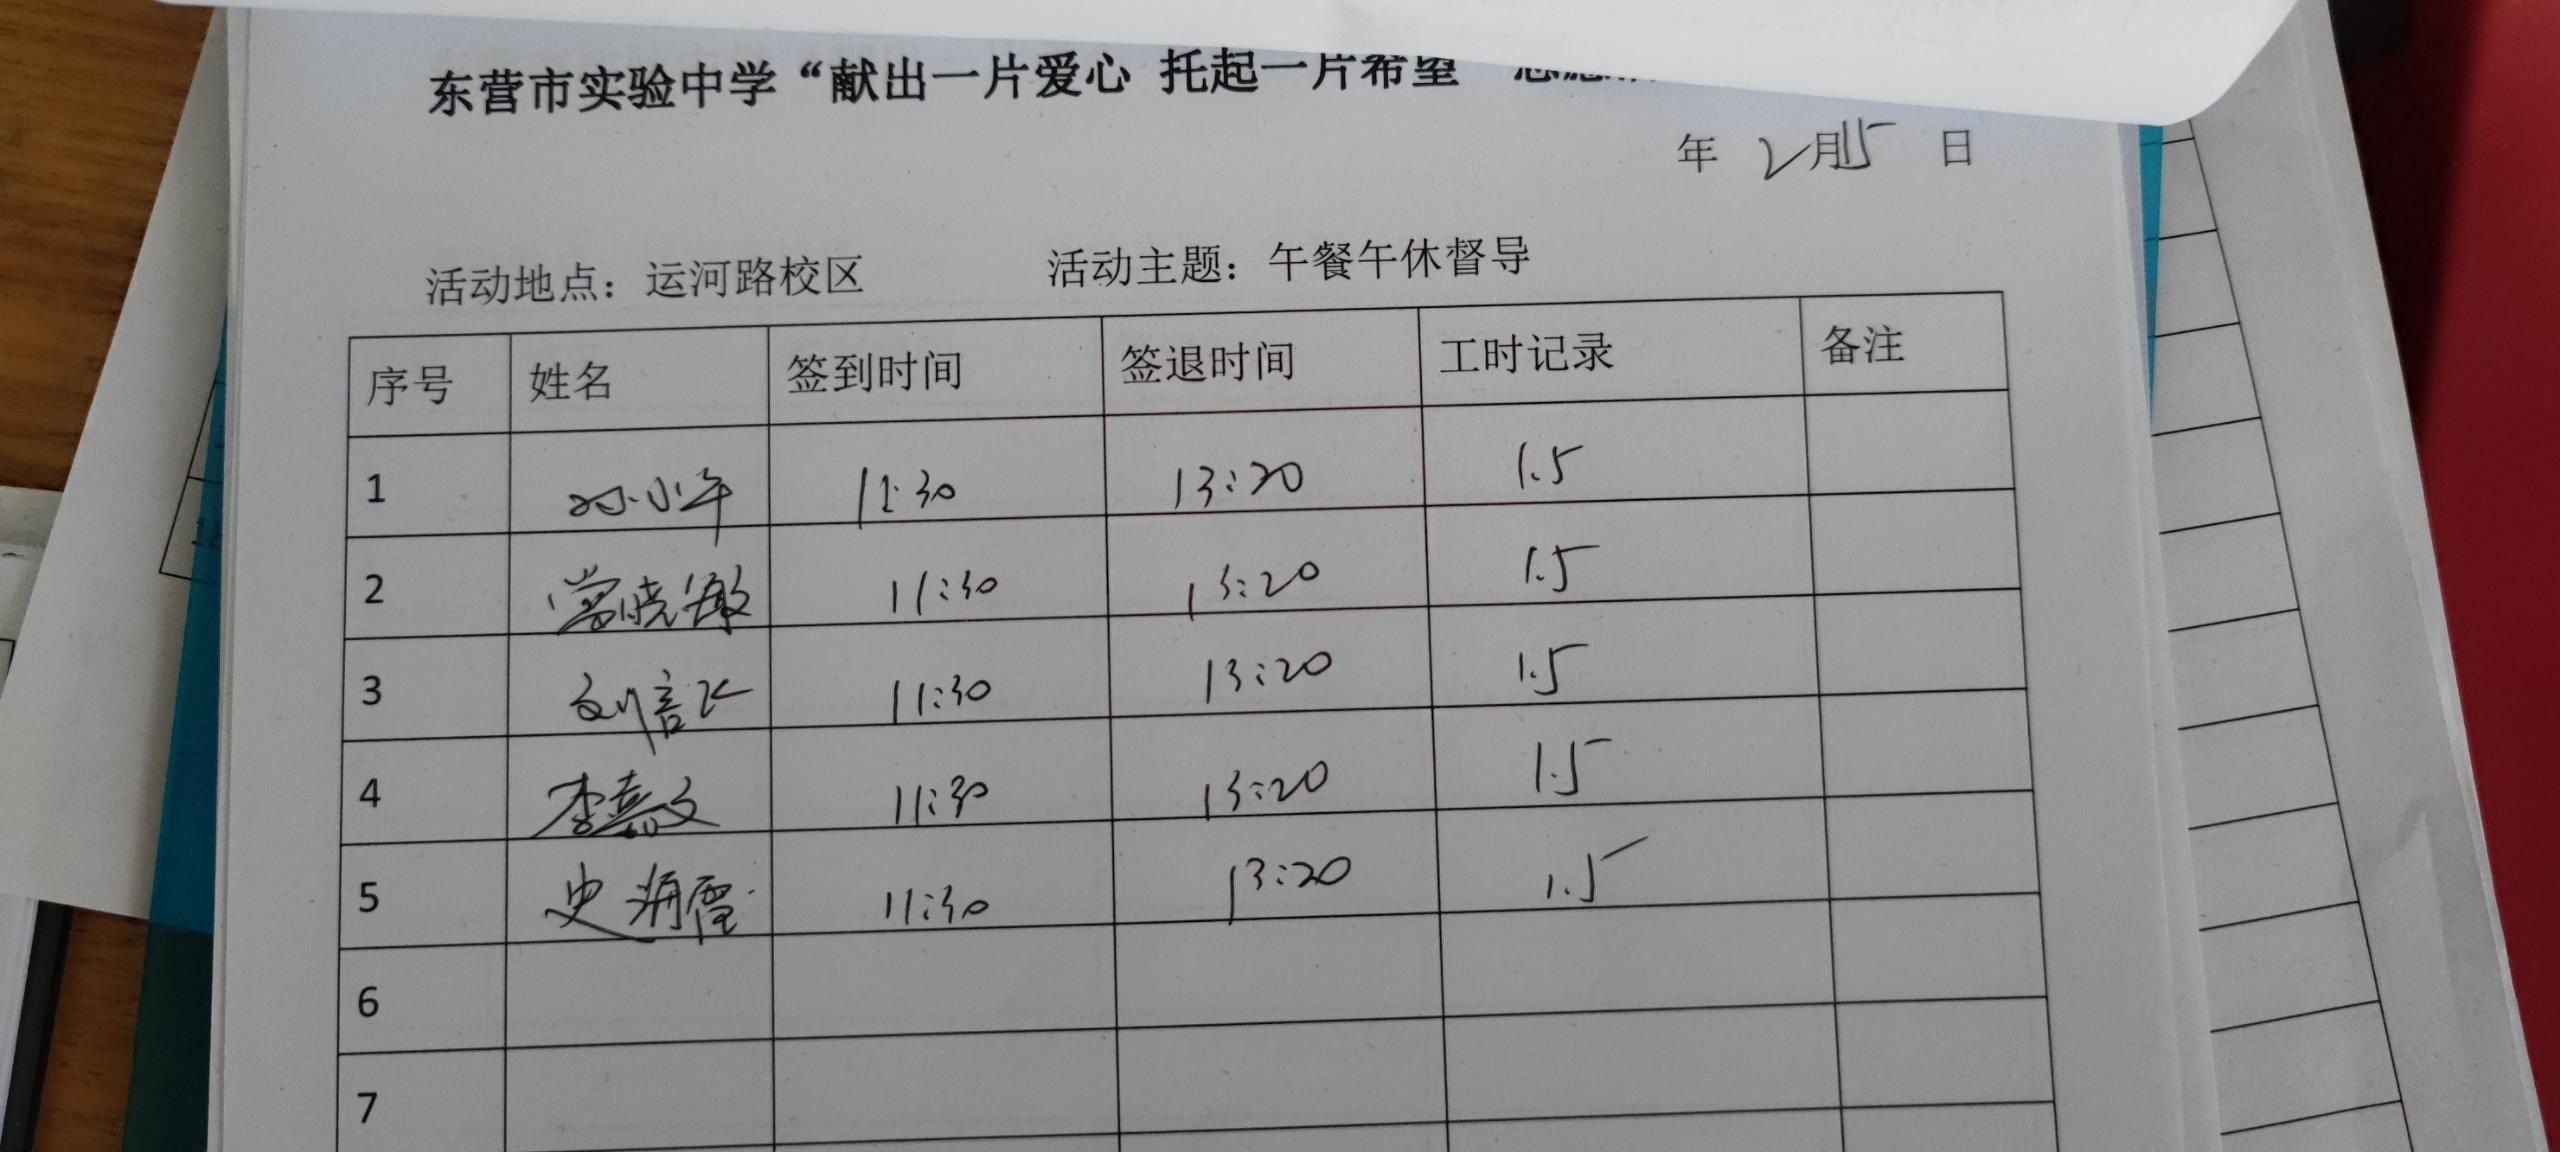 东营市实验中学“献出一片爱心 托起一片希望
年 2月15 日
活动地点：运河路校区 活动主题：午餐午休督导
序号 姓名 签到时间 签退时间 工时记录 备注
1 小午 11:30 13:20 1.5
2 常晓敏 11:30 13:20 1.5
3 刘信 11:30 13:20 1.5
4 李嘉文 11:30 13:20 1.5
5 史海霞 11:30 13:20 1.5
6
7